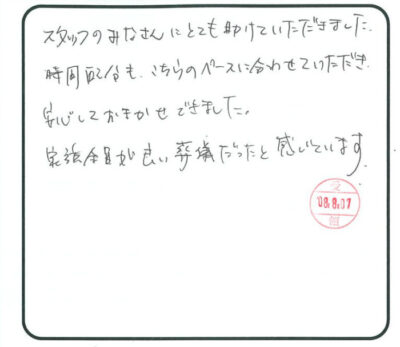 スタッフのみなさんにとても助けていただきました。
時間配分も、こちらのペースに合わせていただき、
安心しておまかせできました。
家族全員が良い葬儀だったと感じています。
受
08.8.07
領